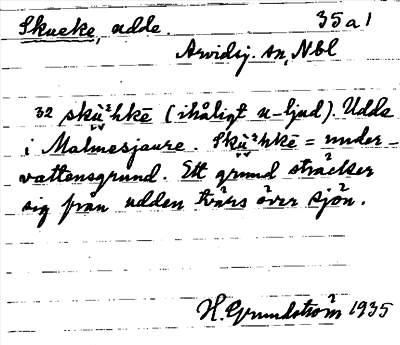 Skueke, udde. 35a1
Arvidsj. sn, Nbl
32 skù²hkē (ihåligt u-ljud). Udde
i Malmesjaure. Skù²hkē = under-
vattensgrund. Ett grund sträcker
sig från udden tvärs över sjön.
H. Grundström 1935